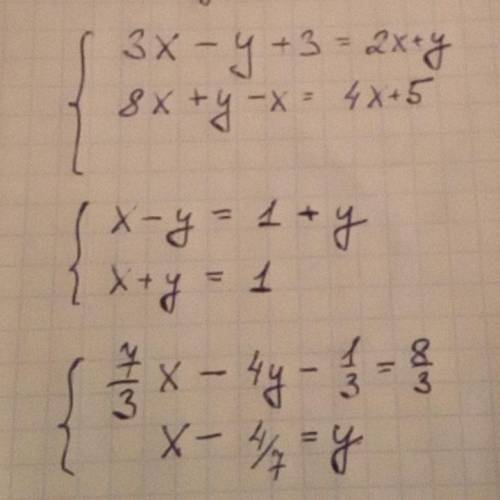 3x - y + 3 = 2x + y
8x + y - x = 4x + 5
x - y = 1 + y
x + y = 1
7/3 x - 4y - 1/3 = 8/3
x - 4/7 = y